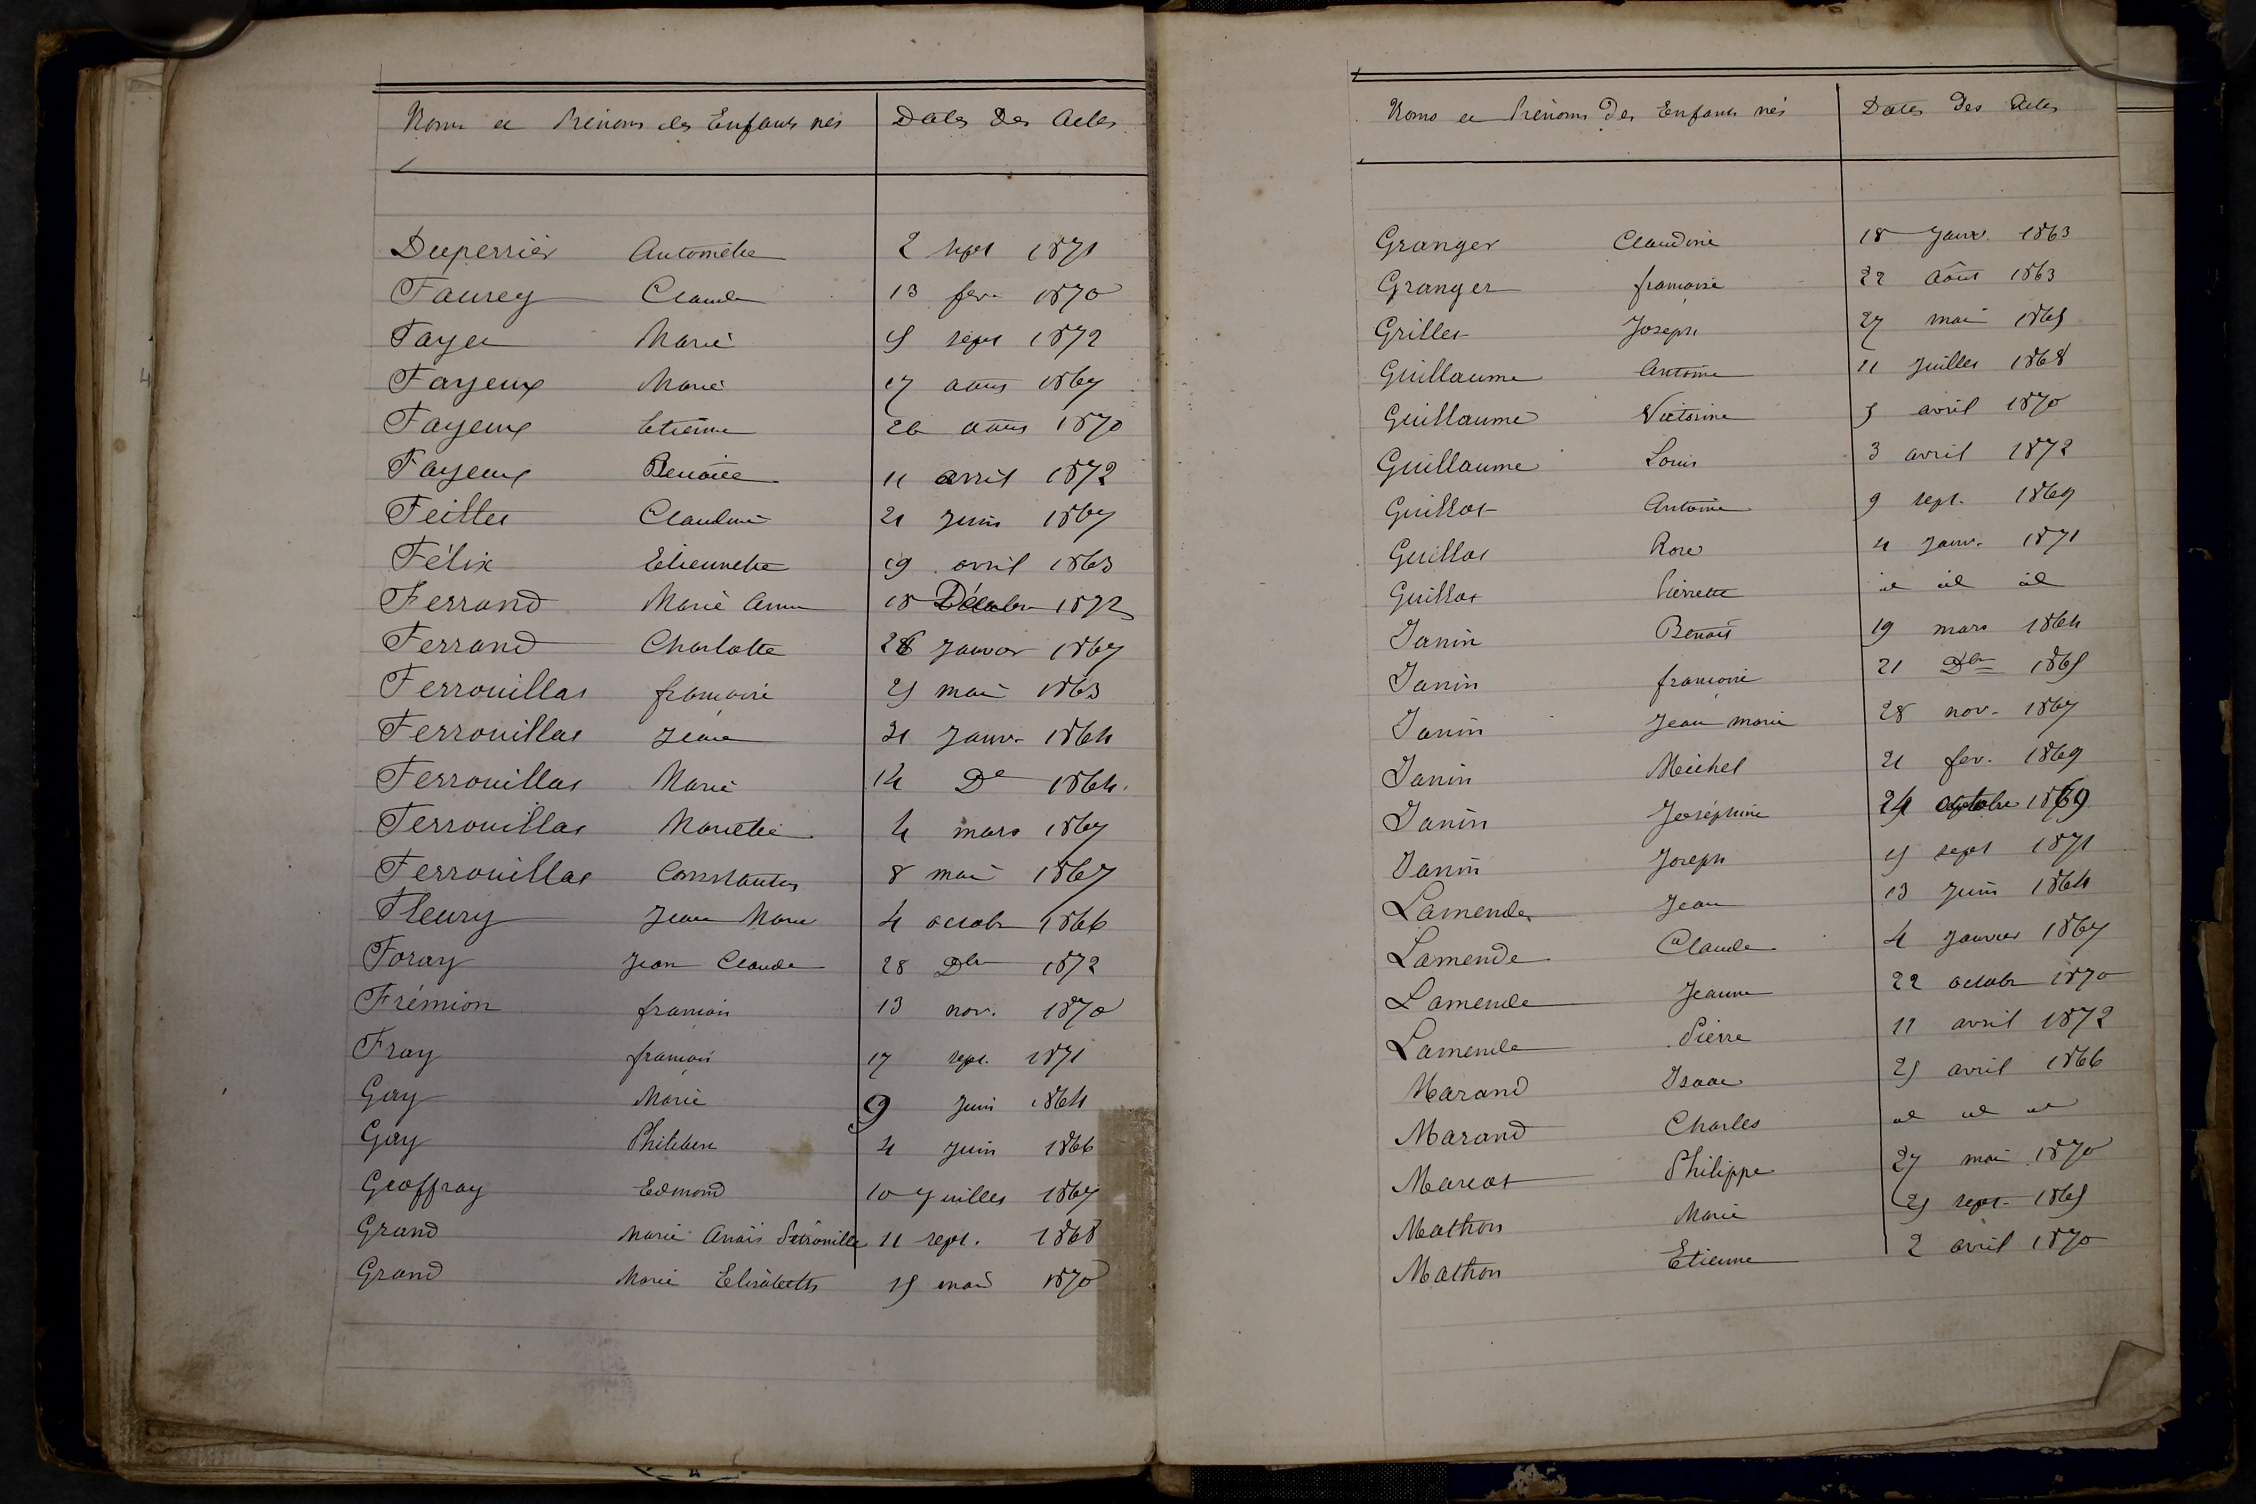 Noms et Prénoms des Enfants nés Dates des Actes
Duperrier Antoinette 2 sept 1871
Faurey Claude 13 fev. 1870
Fayet Marie 15 sept 1872
Fayeux Marie 17 aout 1867
Fayeux Etienne 26 aout 1870
Fayeux Benoite 11 avril 1872
Feillet Claudine 21 Juin 1867
Félix Etiennette 19 avril 1863
Ferrand Marie Anne 18 Décembre 1872
Ferrand Charlotte 26 Janvier 1867
Ferrouillat françoise 25 mai 1863
Ferrouillat Jean 21 Janv. 1864
Ferrouillat Marie 14 De 1864
Ferrouillat Mariette 4 mars 1867
Ferrouillat Constantin 8 mai 1867
Fleury Jean Marie 4 octobre 1866
Foray Jean Claude 28 Dbre 1872
Frémion françois 13 nov. 1870
Fray françois 17 sept. 1871
Gay Marie 9 Juin 1864
Gay Philibert 4 Juin 1866
Geoffray Edmond 10 Juillet 1867
Grand Marie Anaïs Pétronille 11 sept. 1868
Grand Marie Elisabeth 15 mai 1870
Noms et Prénoms Des Enfants nés Dates des Actes
Granger Claudine 18 Janv. 1863
Granger françoise 22 août 1863
Grillet Joseph 27 mai 1865
Guillaume Antoine 11 Juillet 1868
Guillaume Victorine 5 avril 1870
Guillaume Louis 3 avril 1872
Guillot Antoine 9 sept. 1869
Guillot Rose 4 Janv. 1871
Guillot Pierrette id id id
Janin Benoit 19 mars 1864
Janin françoise 21 Dbre 1865
Janin Jean marie 28 nov. 1867
Janin Michel 21 fev. 1869
Janin Joséphine 24 octobre 1869
Janin Joseph 15 sept 1871
Lamende Jean 13 Juin 1864
Lamende Claude 4 Janvier 1867
Lamende Jeanne 22 octobre 1870
Lamende Pierre 11 avril 1872
Marand Isaac 25 avril 1866
Marand Charles id id id
Marcot Philippe 27 mai 1870
Mathon Marie 25 sept. 1865
Mathon Etienne 2 avril 1870